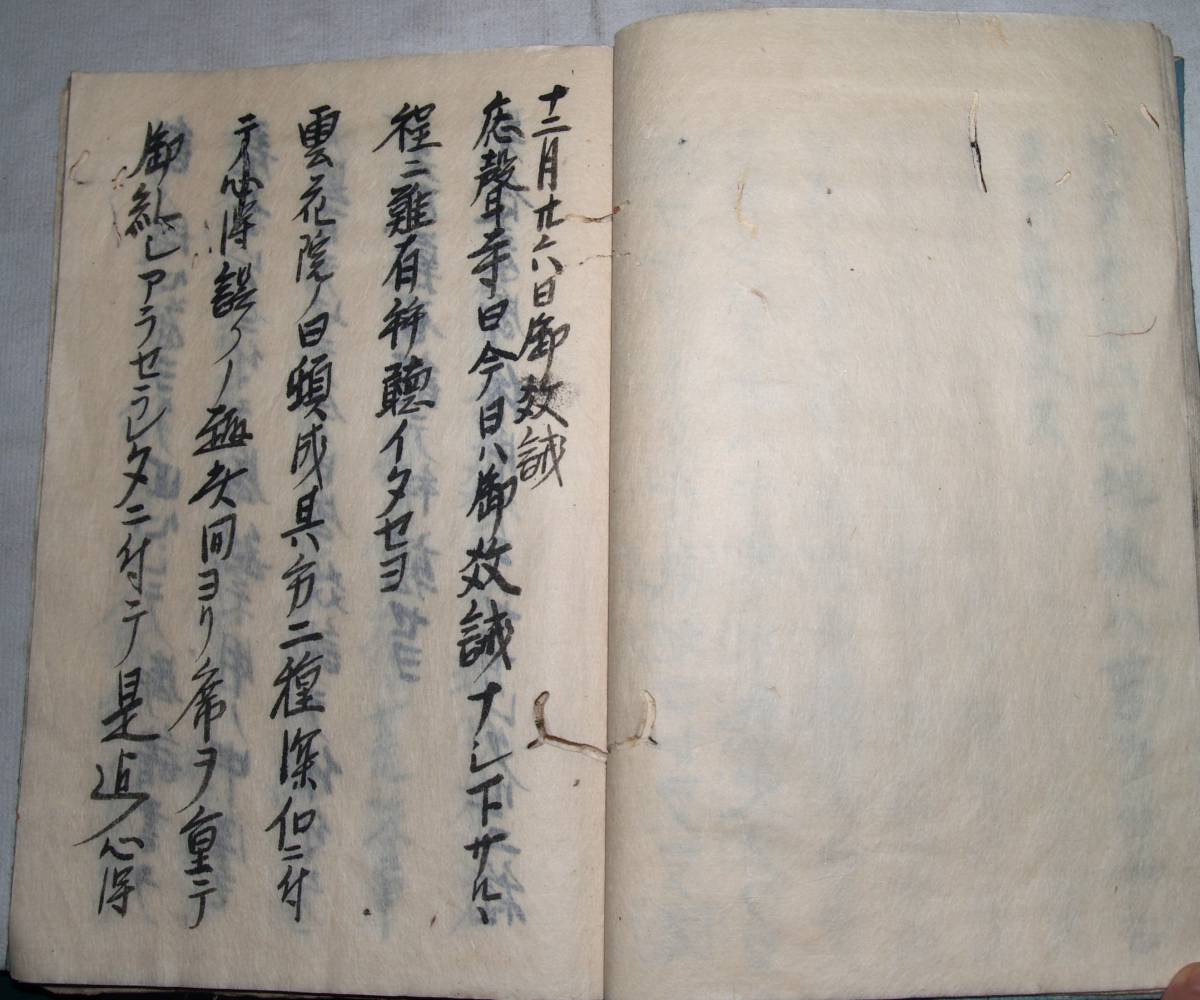 十二月廿六日御教誡
応聲寺曰今日ハ御教誡ナシ下サルヽ
程ニ難有拝聴イタセヨ
雲花院ノ曰頓成其方二種深信ニ付
テ心得誤リノ趣夫間ヨリ席ヲ重テ
御糺シアラセラレタニ付テ是迠ノ心得